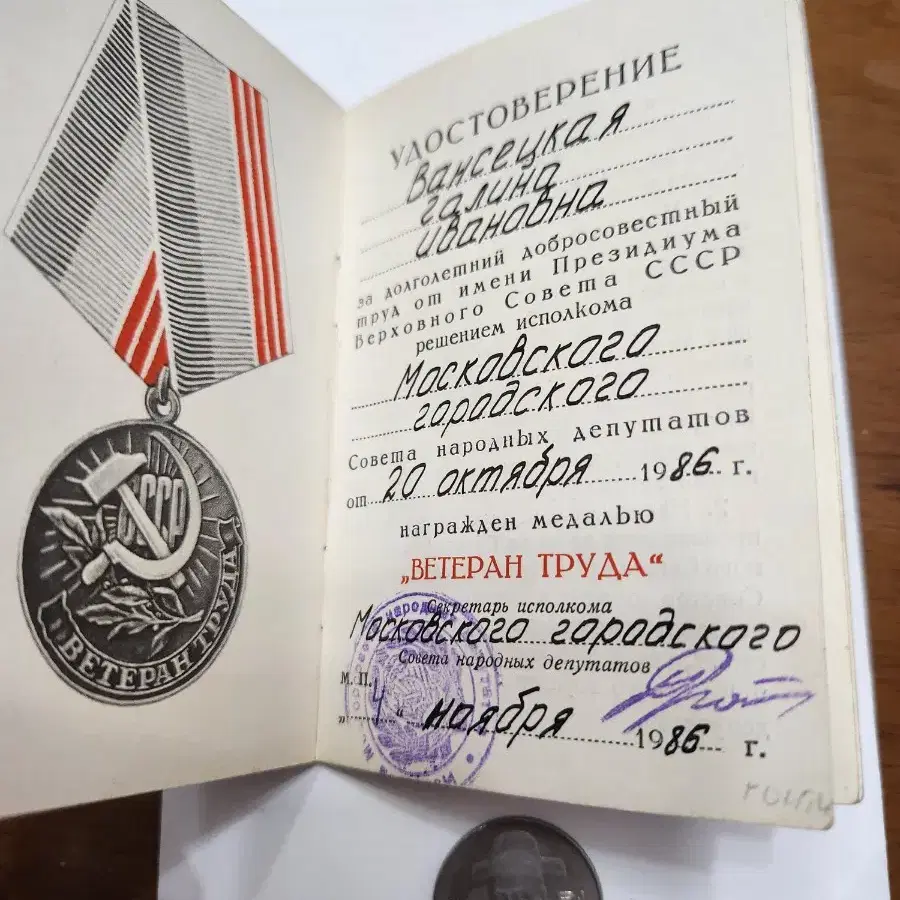 СССР
ВЕТЕРАН ТРУДА
УДОСТОВЕРЕНИЕ
Вансецкая
Галина
Ивановна
за долголетний добросовестный
труд от имени Президиума
Верховного Совета СССР
решением исполкома
Московского
городского
Совета народных депутатов
от 20 октября 1986 г.
награжден медалью
„ВЕТЕРАН ТРУДА“
Секретарь исполкома
Московского городского
Совета народных депутатов
М. П.
„4“ ноября 1986 г.